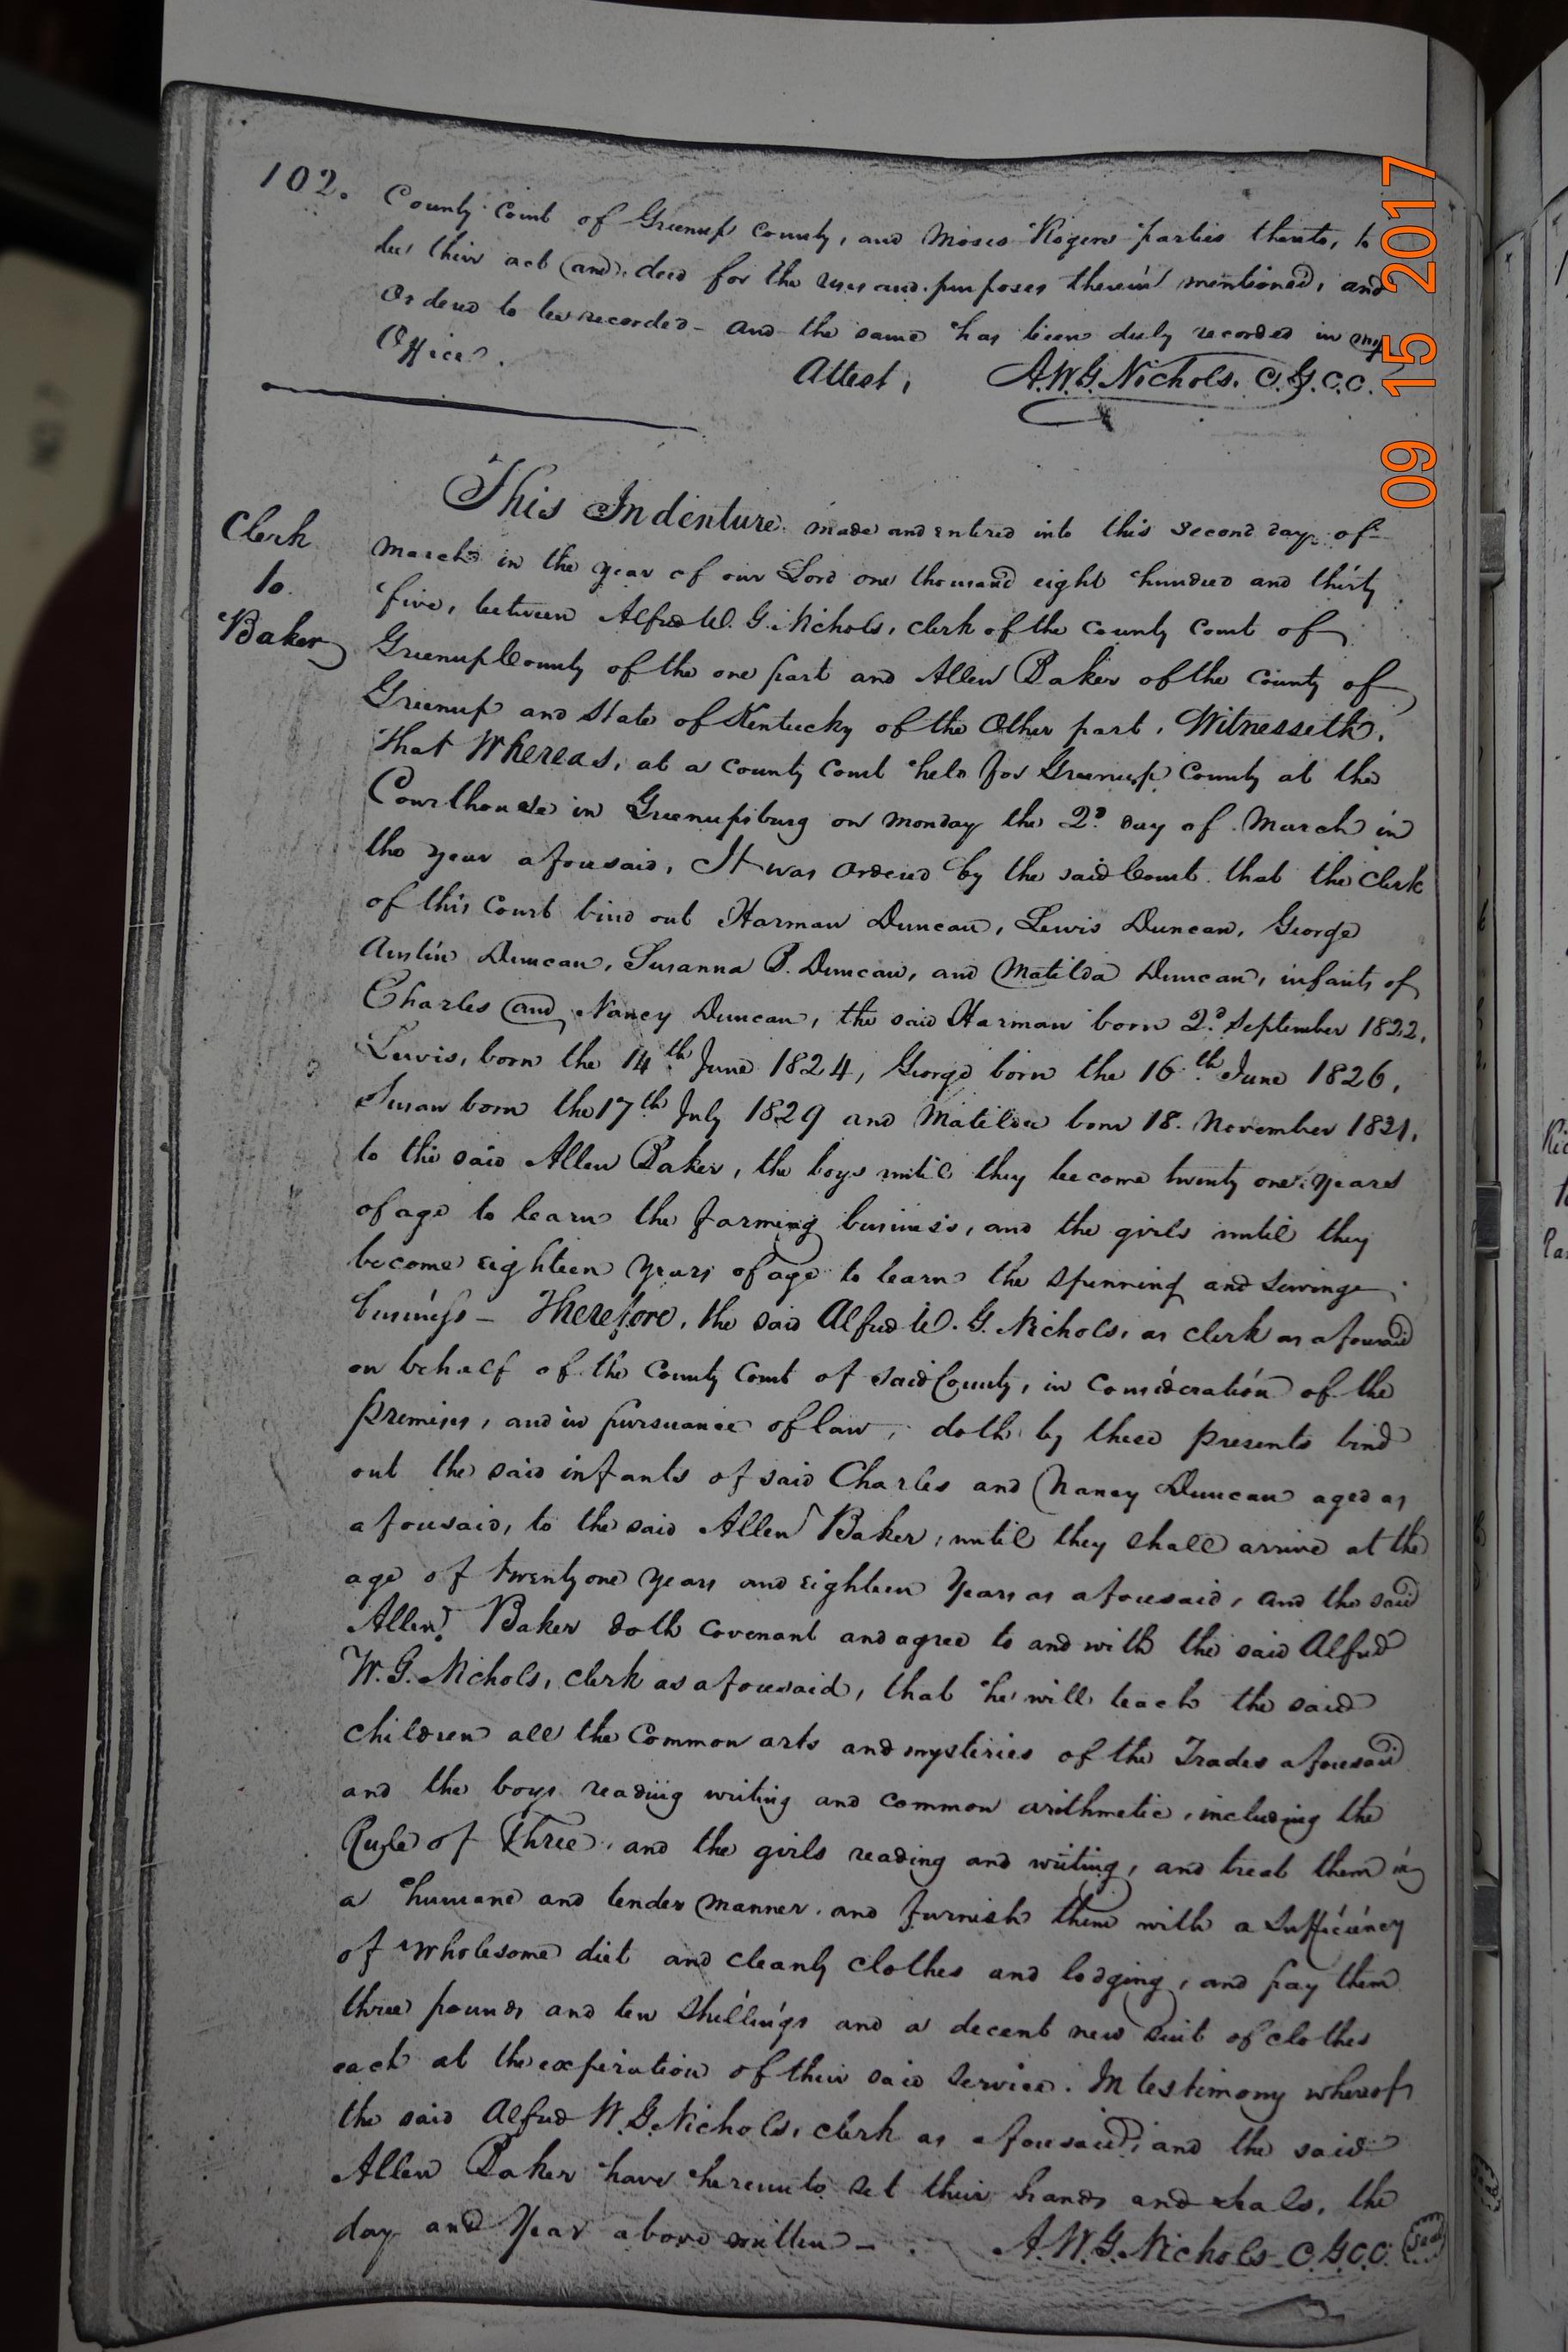 102.
County Court of Greenup County, and Moses Rogers parties thereto, to
be their act and deed for the uses and purposes therein mentioned, and
Ordered to be recorded - and the same has been duly recorded in my
Office.
Attest, A.W.G. Nichols. C.G.C.C.
Clerk
to
Baker
This Indenture made and entered into this second day of
March in the year of our Lord one thousand eight hundred and thirty
five, between Alfred W. G. Nichols, clerk of the County Court of
Greenup County of the one part and Allen Baker of the County of
Greenup and State of Kentucky of the Other part, Witnesseth,
that Whereas, at a County Court held for Greenup County at the
Courthouse in Greenupsburg on Monday the 2d day of March in
the year aforesaid, It was Ordered by the said Court that the Clerk
of this Court bind out Harman Duncan, Lewis Duncan, George
Austin Duncan, Susanna B. Duncan, and Matilda Duncan, infants of
Charles and Nancy Duncan, the said Harman born 2d September 1822,
Lewis, born the 14th June 1824, George born the 16th June 1826,
Susan born the 17th July 1829 and Matilda born 18. November 1821,
to the said Allen Baker, the boys until they become twenty one years
of age to learn the farming business, and the girls until they
become eighteen years of age to learn the spinning and sewing
business - Therefore, the said Alfred W. G. Nichols, as clerk as aforesaid
on behalf of the County Court of said County, in consideration of the
premises, and in pursuance of law, doth by these presents bind
out the said infants of said Charles and Nancy Duncan aged as
aforesaid, to the said Allen Baker, until they shall arrive at the
age of twenty one years and eighteen years as aforesaid, and the said
Allen Baker doth covenant and agree to and with the said Alfred
W. G. Nichols, clerk as aforesaid, that he will teach the said
children all the Common arts and mysteries of the Trades aforesaid
and the boys reading writing and common arithmetic, including the
Rule of Three, and the girls reading and writing, and treat them in
a humane and tender manner, and furnish them with a sufficiency
of wholesome diet and cleanly clothes and lodging, and pay them
three pounds and ten shillings and a decent new suit of clothes
each at the expiration of their said service. In testimony whereof
the said Alfred W. G. Nichols, clerk as aforesaid, and the said
Allen Baker have hereunto set their hands and seals, the
day and year above written - . A. W. G. Nichols - C.G.C.C. Seal
09 15 2017